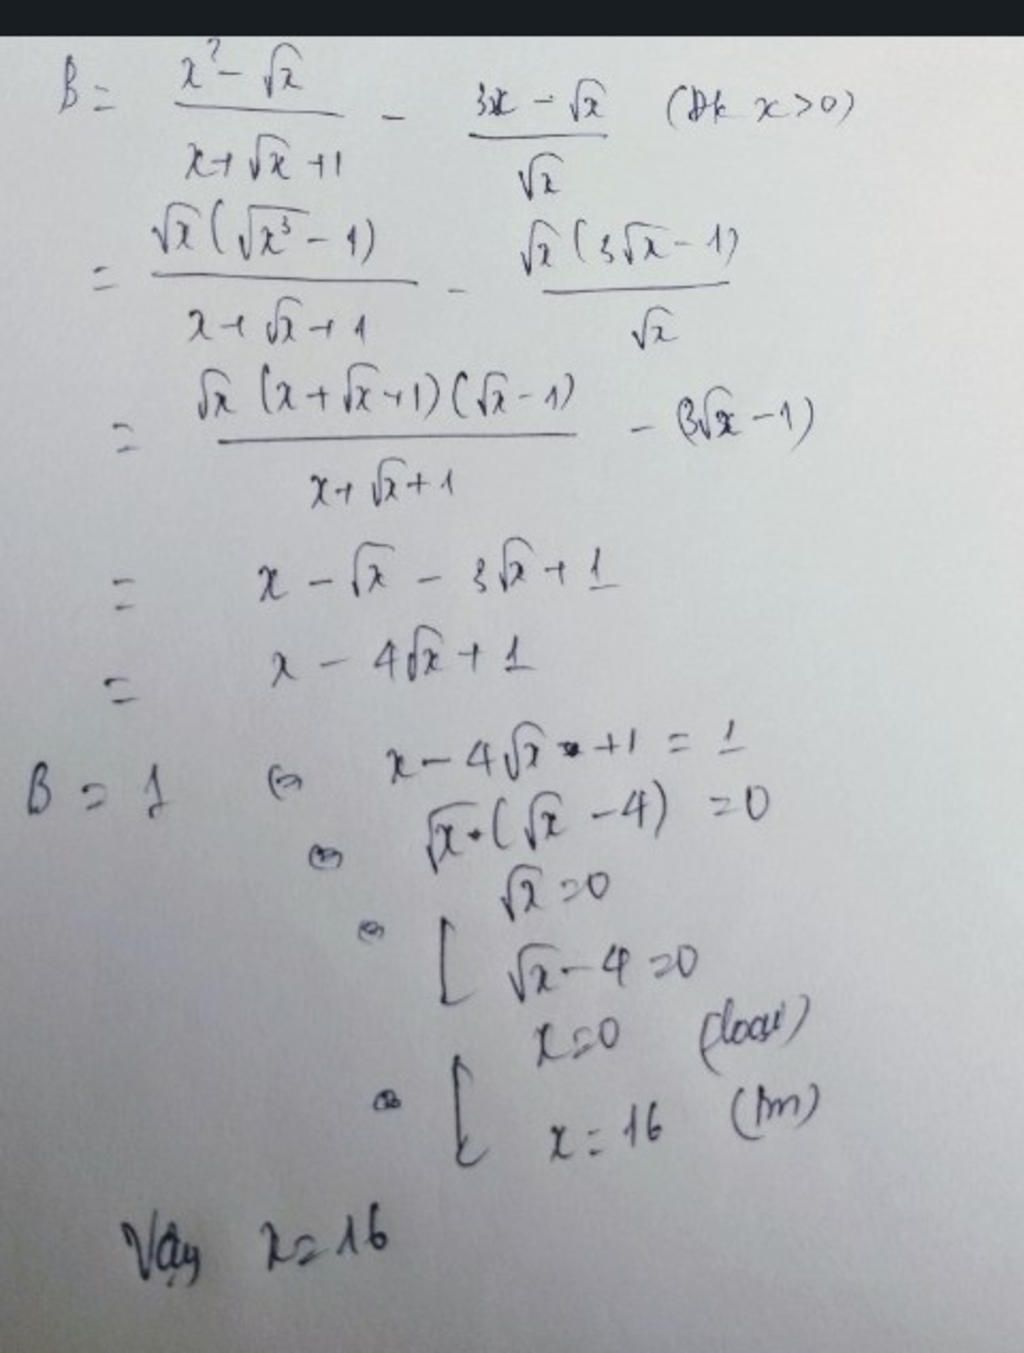 B = \frac{x^2 - \sqrt{x}}{x + \sqrt{x} + 1} - \frac{3x - \sqrt{x}}{\sqrt{x}} (Đk x > 0)
= \frac{\sqrt{x}(\sqrt{x^3} - 1)}{x + \sqrt{x} + 1} - \frac{\sqrt{x}(3\sqrt{x} - 1)}{\sqrt{x}}
= \frac{\sqrt{x}(x + \sqrt{x} + 1)(\sqrt{x} - 1)}{x + \sqrt{x} + 1} - (3\sqrt{x} - 1)
= x - \sqrt{x} - 3\sqrt{x} + 1
= x - 4\sqrt{x} + 1
B = 1 ⇔ x - 4\sqrt{x} + 1 = 1
⇔ \sqrt{x} · (\sqrt{x} - 4) = 0
⇔ [ \sqrt{x} = 0
\sqrt{x} - 4 = 0
⇔ [ x = 0 (loại)
x = 16 (tm)
Vậy x = 16